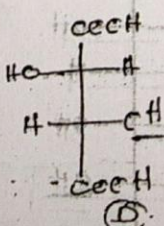 COOH
HO H
H OH
COOH
D